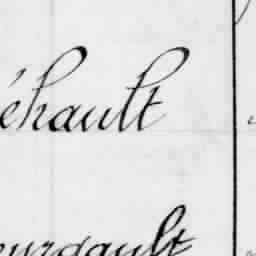 éhault
eurgault